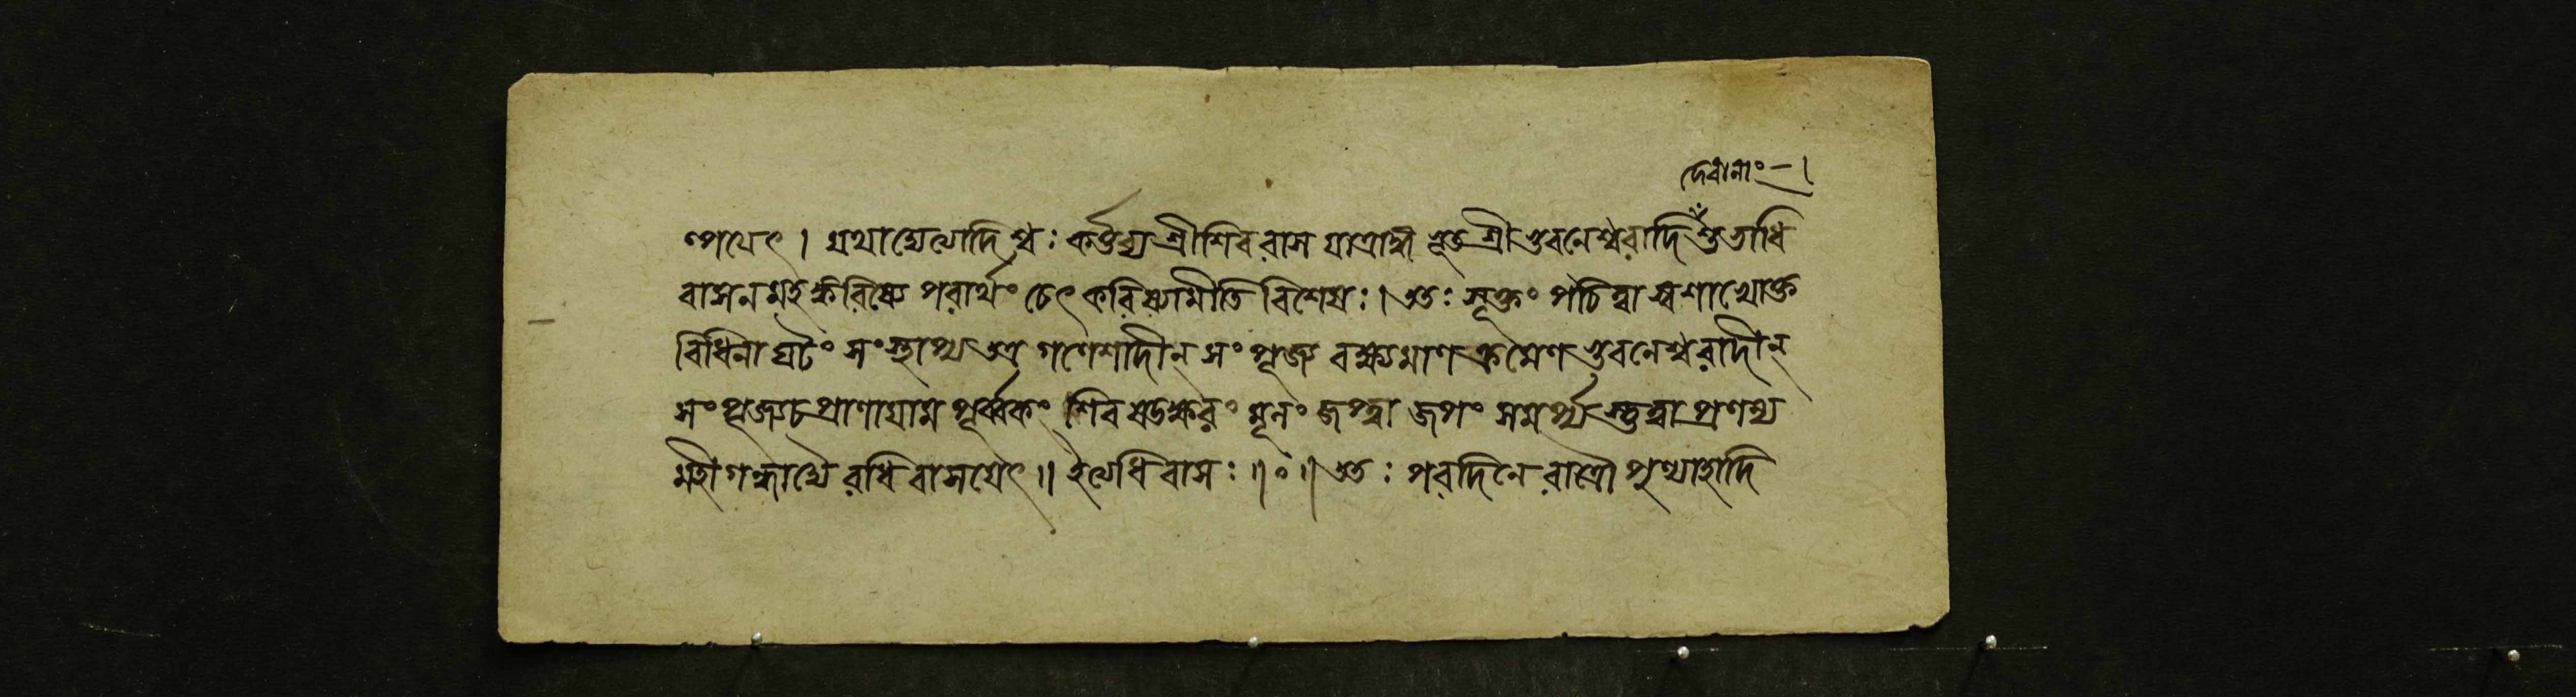 দেবানাং-।
ল্পয়েৎ। যথাদ্যেত্যাদি শ্বঃ কর্ত্তব্য শ্রীশিবরাস যাত্রাঙ্গীভূত শ্রীভুবনেশ্বরাদি শুভাধি
বাসনমহঙ্করিষ্যে পরার্থং চেৎ করিষ্যামীতি বিশেষঃ। ততঃ সূক্তং পঠিত্বা স্বশাখোক্ত
বিধিনা ঘটং সংস্থাপ্য তত্র গণেশাদীন্ সংপূজ্য বক্ষ্যমাণক্রমেণ ভুবনেশ্বরাদীন্
সংপূজ্য চ প্রাণায়াম পূর্ব্বকং শিব ষডক্ষরং মূলং জপ্ত্বা জপং সমর্প্য স্তুত্বা প্রণম্য
মহীগন্ধাদ্যৈ রধিবাসয়েৎ॥ ইত্যধিবাসঃ॥০॥ ততঃ পরদিনে রাত্রৌ পুণ্যাহাদি